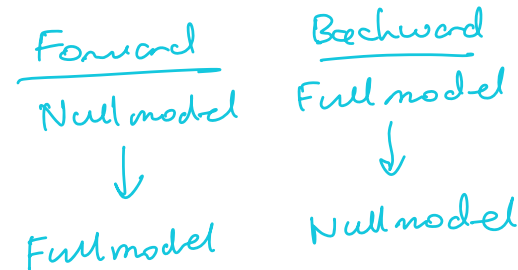 Forward
Null model
Full model
Backward
Full model
Null model